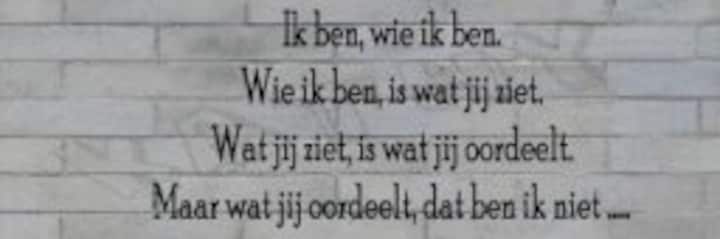 Ik ben, wie ik ben.
Wie ik ben, is wat jij ziet.
Wat jij ziet, is wat jij oordeelt.
Maar wat jij oordeelt, dat ben ik niet ....